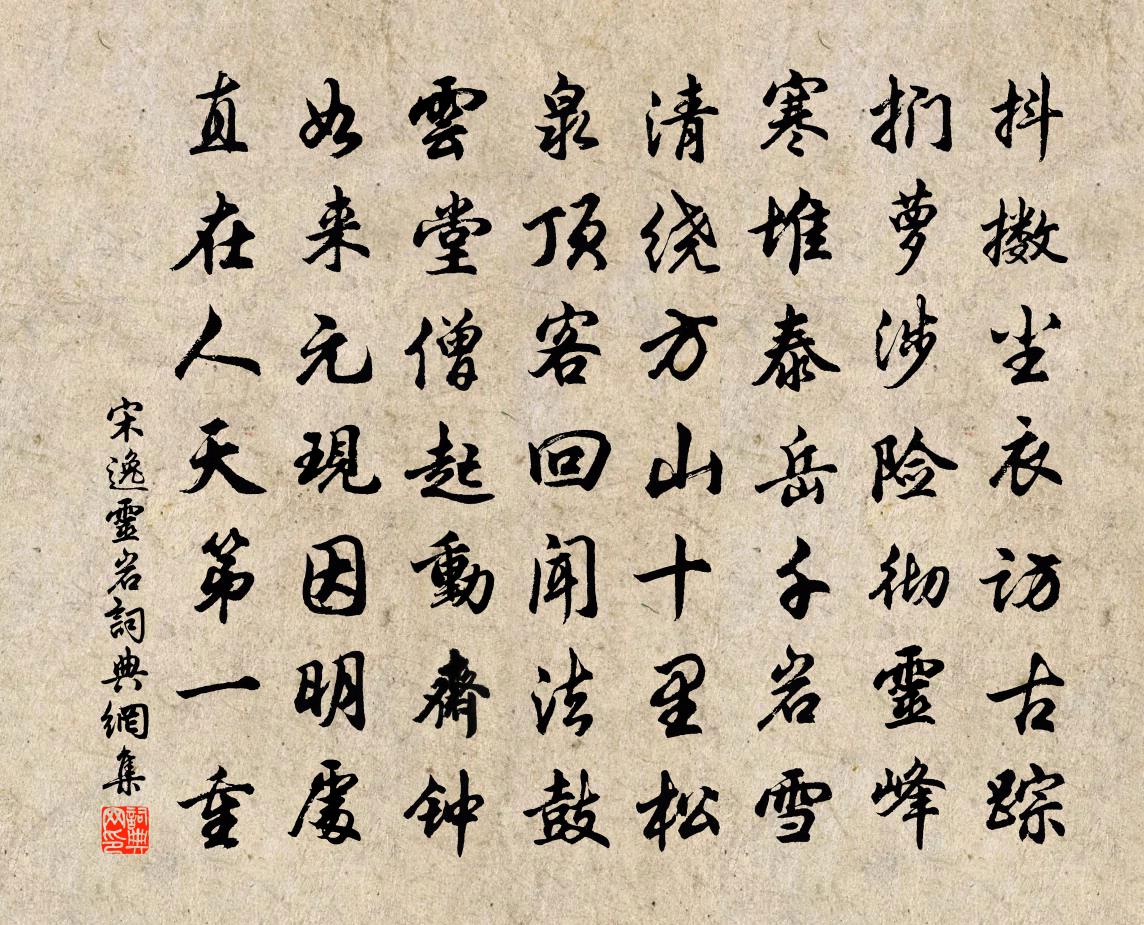 抖擞尘衣访古踪
扪萝涉险彻靈峰
寒堆泰岳千岩雪
清绕方山十里松
泉顶客回闻法鼓
雲堂僧起動齋钟
如来元現因明處
直在人天第一重
宋逸靈岩詞典網集
詞典網印